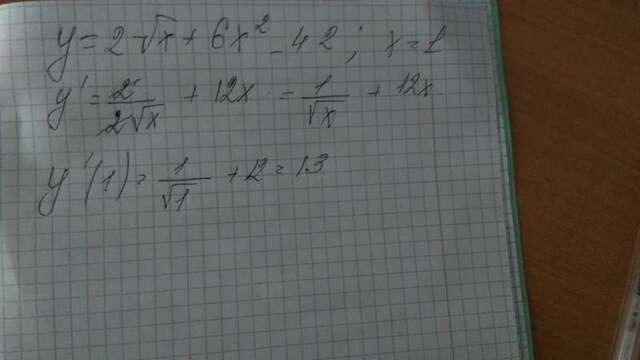 y = 2√x + 6x² - 42; x = 1
y' = 2/(2√x) + 12x = 1/√x + 12x
y'(1) = 1/√1 + 12 = 13